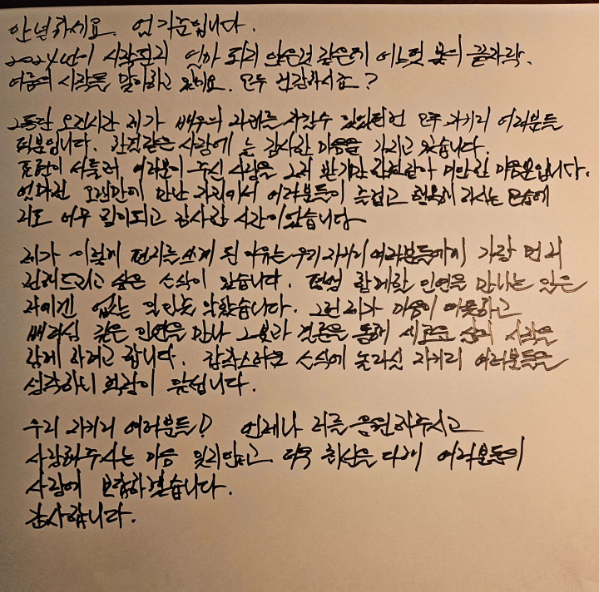 안녕하세요. 엄기준입니다.
2024년이 시작된지 얼마 되지 않은것 같은데 어느덧 봄의 끝자락.
여름의 시작을 맞이하고 있네요. 모두 건강하시죠?
그동안 오랜시간 제가 배우의 자리를 지킬수 있었던건 모두 자기리 여러분들
덕분입니다. 한결같은 사랑에 늘 감사한 마음을 가지고 있습니다.
표현이 서툴러, 여러분이 주신 사랑을 그저 받기만 한것같아 미안한 마음뿐입니다.
얼마전 오랜만에 만난 자리에서 여러분들이 즐겁고 행복해 하시는 모습에
저도 너무 힐이되고 감사한 시간이었습니다
제가 이렇게 편지를 쓰게 된 이유는 우리 자기리 여러분들에게 가장 먼저
전해드리고 싶은 소식이 있습니다. 평생 함께할 인연을 만나는 일은
저에겐 없는 일인줄 알았습니다. 그런 제가 마음이 따뜻하고
배려심 깊은 인연을 만나 그분과 결혼을 통해 새로운 삶의 시작을
함께 하려고 합니다. 갑작스러운 소식에 놀라실 자기리 여러분들을
생각하니 걱정이 앞섭니다.
우리 자기리 여러분들! 언제나 저를 응원해주시고
사랑해주시는 마음 잊지않고 더욱 최선을 다해 여러분들의
사랑에 보답하겠습니다.
감사합니다.